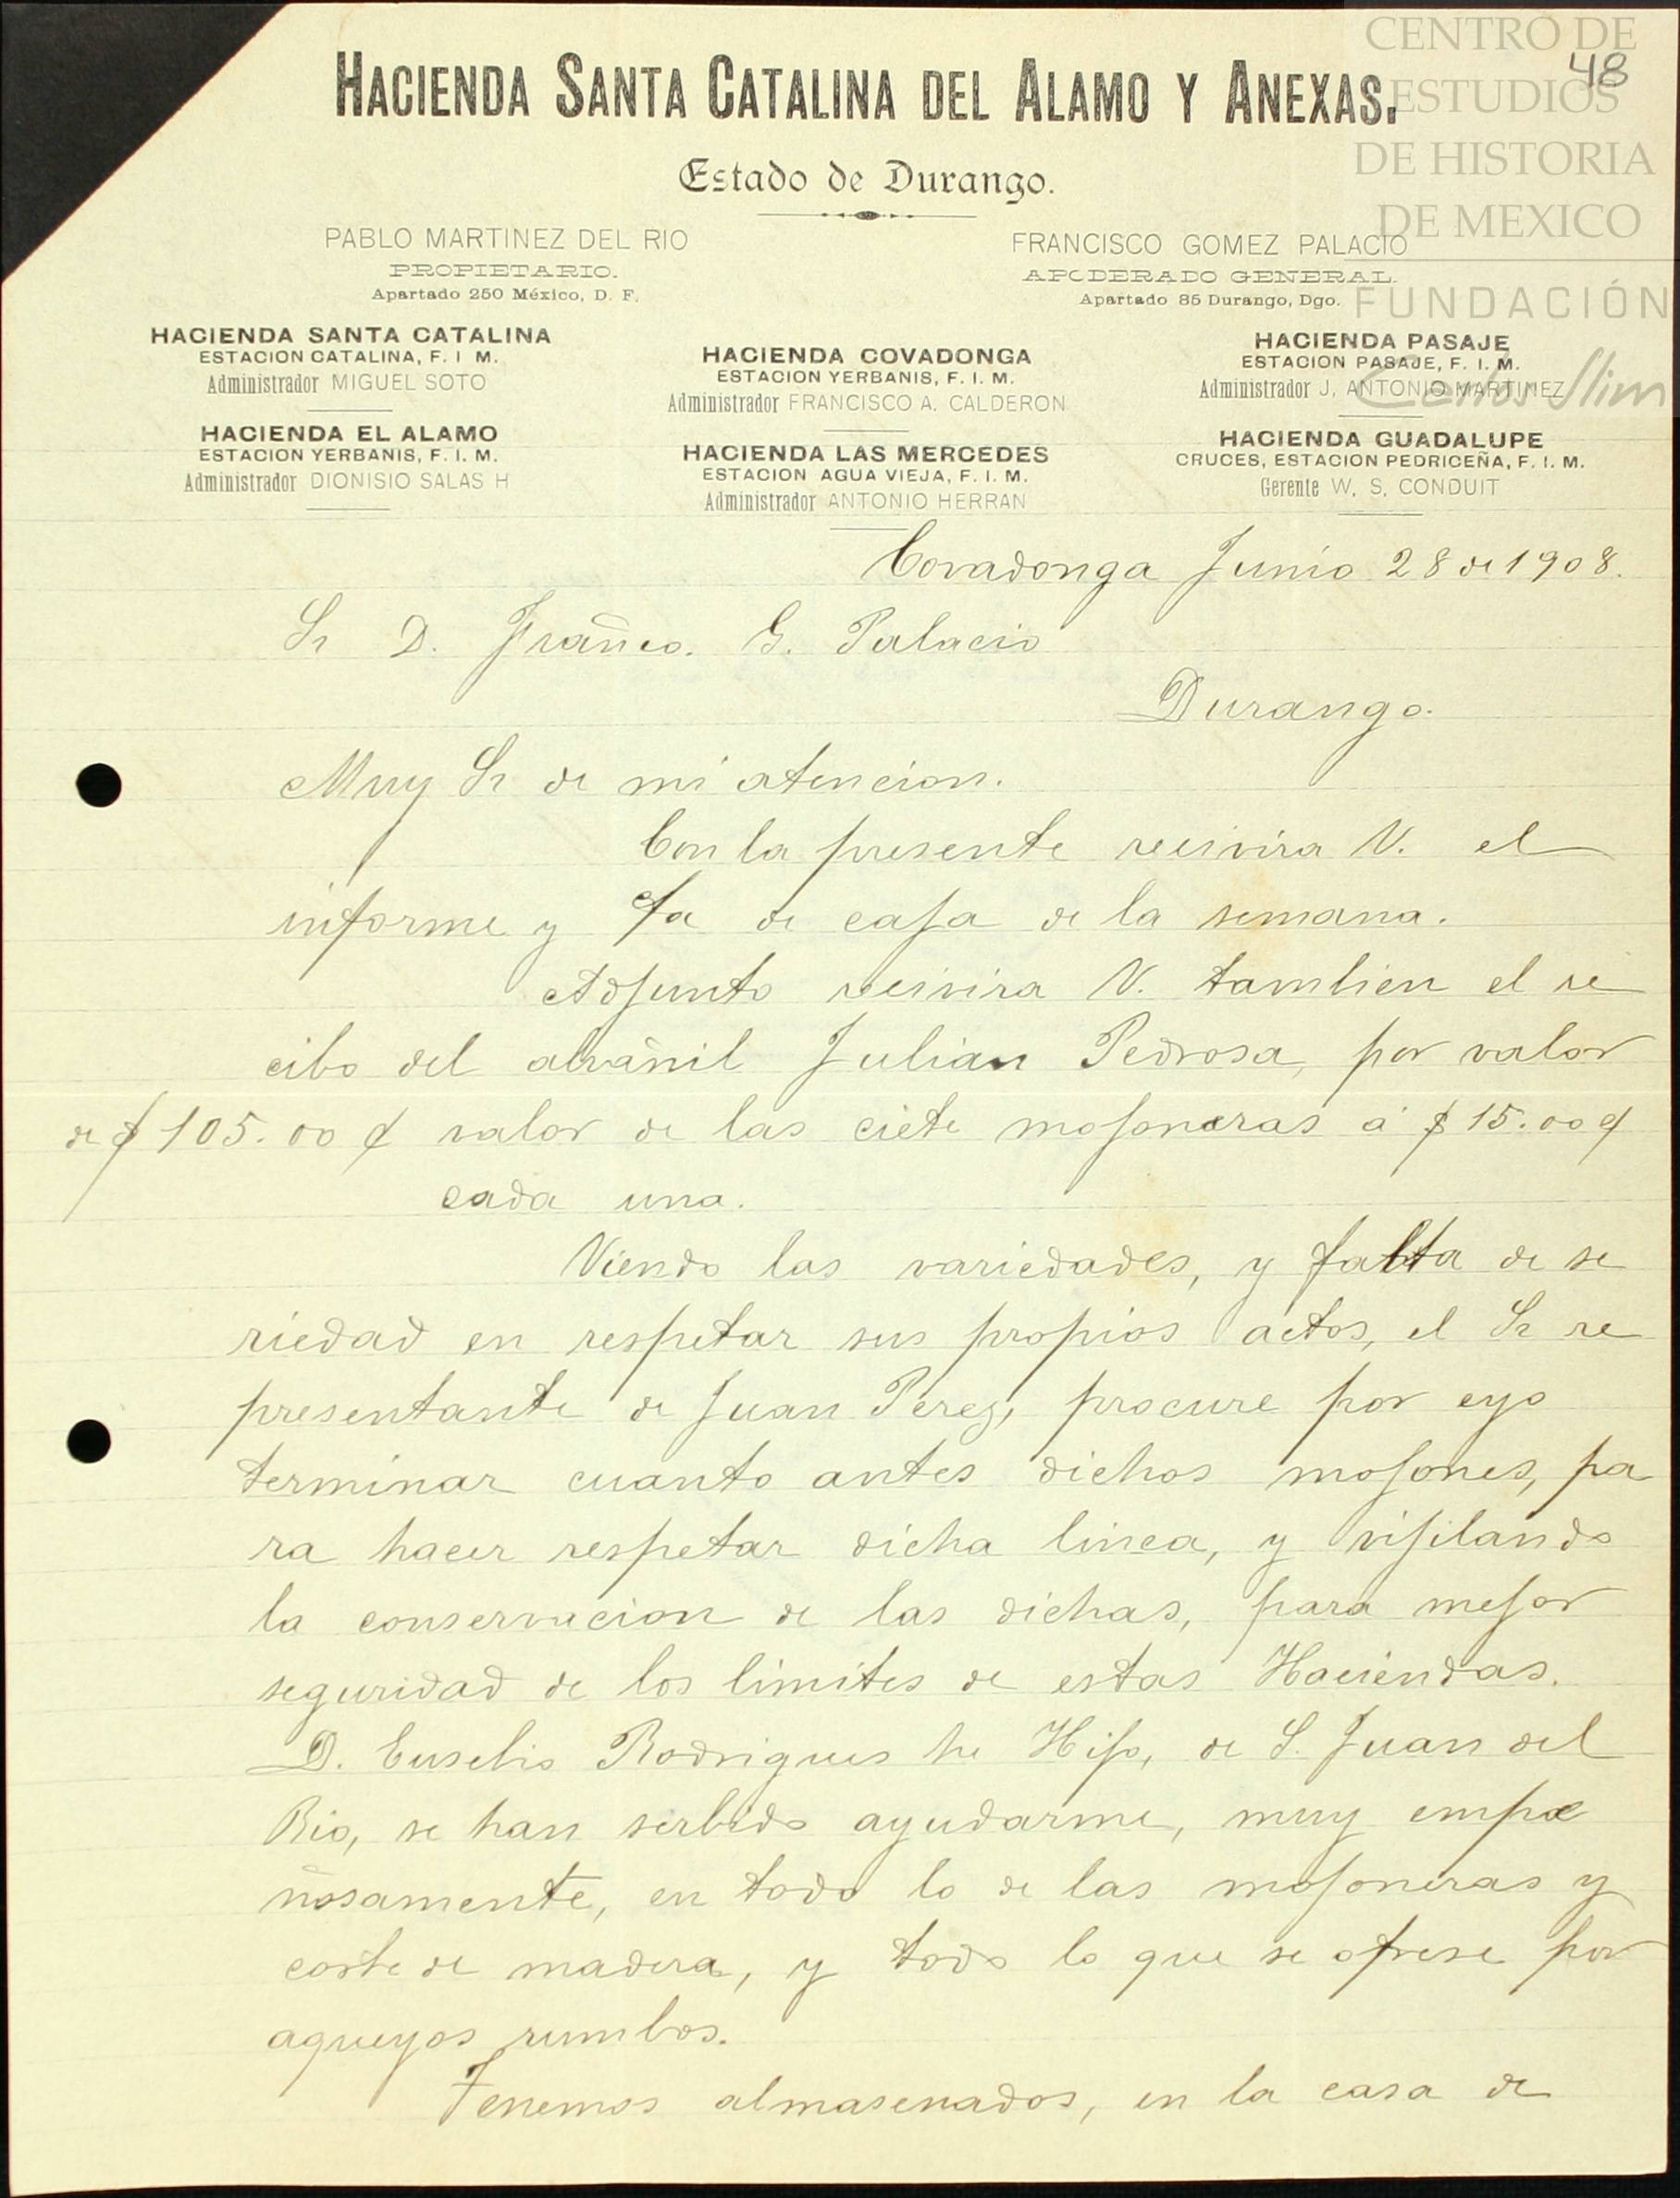 CENTRO DE
ESTUDIOS
DE HISTORIA
DE MEXICO
FUNDACIÓN
Carlos Slim
48
HACIENDA SANTA CATALINA DEL ALAMO Y ANEXAS.
Estado de Durango.
PABLO MARTINEZ DEL RIO
PROPIETARIO.
Apartado 250 México, D. F.
FRANCISCO GOMEZ PALACIO
APODERADO GENERAL.
Apartado 85 Durango, Dgo.
HACIENDA SANTA CATALINA
ESTACION CATALINA, F. I M.
Administrador MIGUEL SOTO
HACIENDA EL ALAMO
ESTACION YERBANIS, F. I. M.
Administrador DIONISIO SALAS H
HACIENDA COVADONGA
ESTACION YERBANIS, F. I. M.
Administrador FRANCISCO A. CALDERON
HACIENDA LAS MERCEDES
ESTACION AGUA VIEJA, F. I. M.
Administrador ANTONIO HERRAN
HACIENDA PASAJE
ESTACION PASAJE, F. I. M.
Administrador J, ANTONIO MARTINEZ
HACIENDA GUADALUPE
CRUCES, ESTACION PEDRICEÑA, F. I. M.
Gerente W. S. CONDUIT
Covadonga Junio 28 de 1908.
Sr D. Frañco. G. Palacio
Durango.
Muy Sr de mi atencion.
Con la presente recivira V. el
informe y de caja de la semana.
Adjunto recivira V. tambien el re
cibo del alvañil Julian Pedrosa, por valor
de $105.00 ¢ valor de las ciete mojoneras á $15.00 ¢
cada una.
Viendo las variedades, y falta de se
riedad en respetar sus propios actos, el Sr re
presentante de Juan Perez, procure por eyo
terminar cuanto antes dichos mojones, pa
ra hacer respetar dicha linea, y vijilando
la conservacion de las dichas, para mejor
seguridad de los limites de estas Haciendas.
D. Euselio Rodrigues he Hijo, de S. Juan del
Rio, se han serbido ayudarme, muy empe
ñosamente, en todo lo de las mojoneras y
corte de madera, y todo lo que se ofrese por
aqueyos rumbos.
Tenemos almasenados, en la casa de